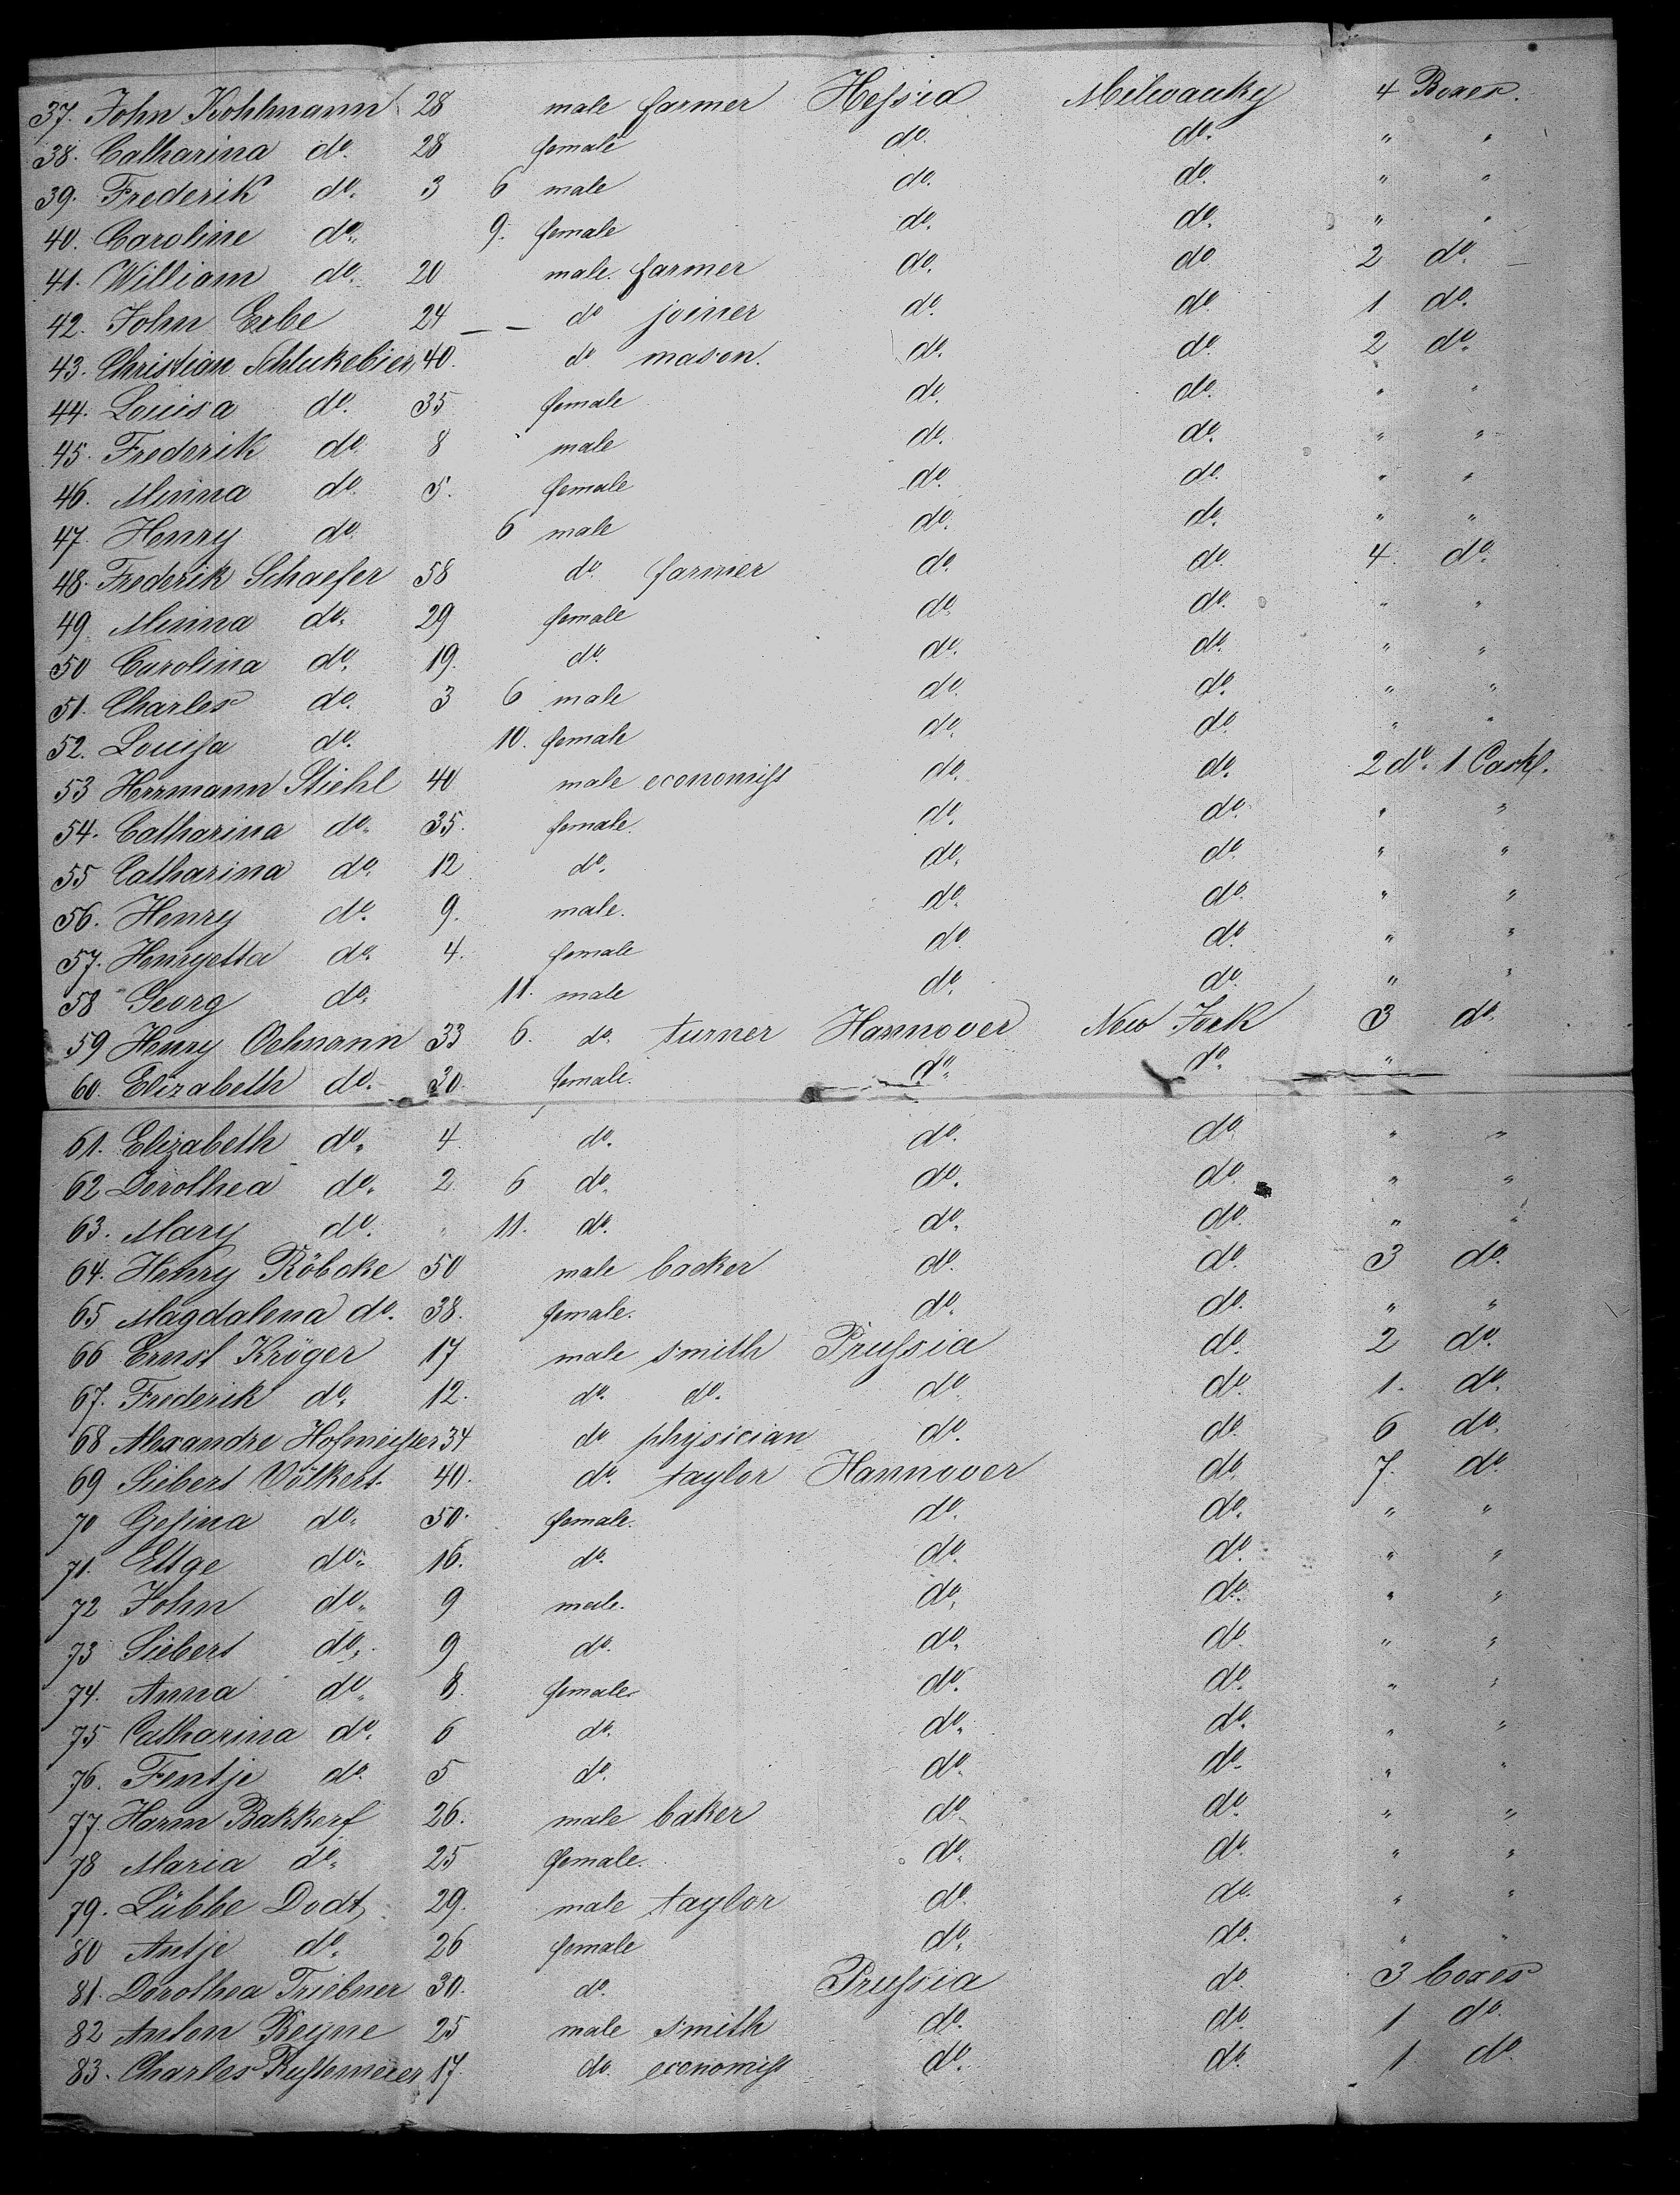 37. John Kohlmann 28 male farmer Hessia Milwauky 4 Boxes.
38. Catharina do. 28 female do. do. " "
39. Frederik do. 3 6 male do. do. " "
40. Caroline do. 9. female do. do. " "
41. William do. 20 male. farmer do. do 2 do.
42. John Erbe 24 — — do joiner do. do. 1 do.
43. Christian Schlukebier 40. do mason. do. do. 2 do.
44. Louisa do. 35 female do. do. " "
45. Frederik do. 8 male do. do. " "
46. Minna do. 5. female do. do. " "
47. Henry do. 6 male do. do. " "
48. Frederik Schaefer 58 do. farmer do. do. 4. do.
49. Minna do. 29 female do. do. " "
50 Carolina do. 19. do. do. do. " "
51. Charles do. 3 6 male do. do. " "
52. Louisa do. 10. female do. do. " "
53 Herrmann Stiehl 40 male economist do. do. 2 do. 1 Cask.
54. Catharina do. 35. female. do. do. " "
55 Catharina do. 12 do. do. do. " "
56. Henry do. 9. male. do. do. " "
57. Henryetta do. 4. female do. do. " "
58 Georg do. 11. male do. do. " "
59 Henry Oelmann 33 6. do. turner Hannover New York 3 do.
60. Elizabeth do. 30. female. do. do. "
61. Elizabeth do. 4 do. do. do. " "
62 Dorothea do. 2 6 do. do. do. " "
63. Mary do. " 11. do. do. do. " "
64. Henry Röbcke 50 male backer do. do. 3 do.
65 Magdalena do. 38. female. do. do. " "
66 Ernst Kröger 17 male smith Prussia do. 2 do.
67. Frederik do. 12. do. do. do. do. 1. do.
68 Alexandre Hofmeister 34 do physician do. do. 6 do.
69 Siebert Volkert. 40. do. taylor Hannover do. 7. do.
70 Gesina do. 50. female. do. do. " "
71. Ettge do. 16. do. do. do. " "
72 John do. 9 male. do. do. " "
73 Siebert do. 9 do. do. do " "
74. Anna do. 8. female. do. do. " "
75 Catharina do. 6 do. do. do. " "
76. Fentje do. 5 do. do. do. " "
77. Harm Bakkerf 26. male baker do. do. " "
78 Maria do. 25 female. do. do. " "
79. Lübbe Dodt, 29. male taylor do. do. " "
80 Antje do. 26 female do. do. " "
81. Dorothea Triebner 30. do. Prussia do. 3 boxes
82 Anton Beyne 25 male smith do. do. 1 do.
83. Charles Rustemeier 17. do. economist do. do. 1 do.